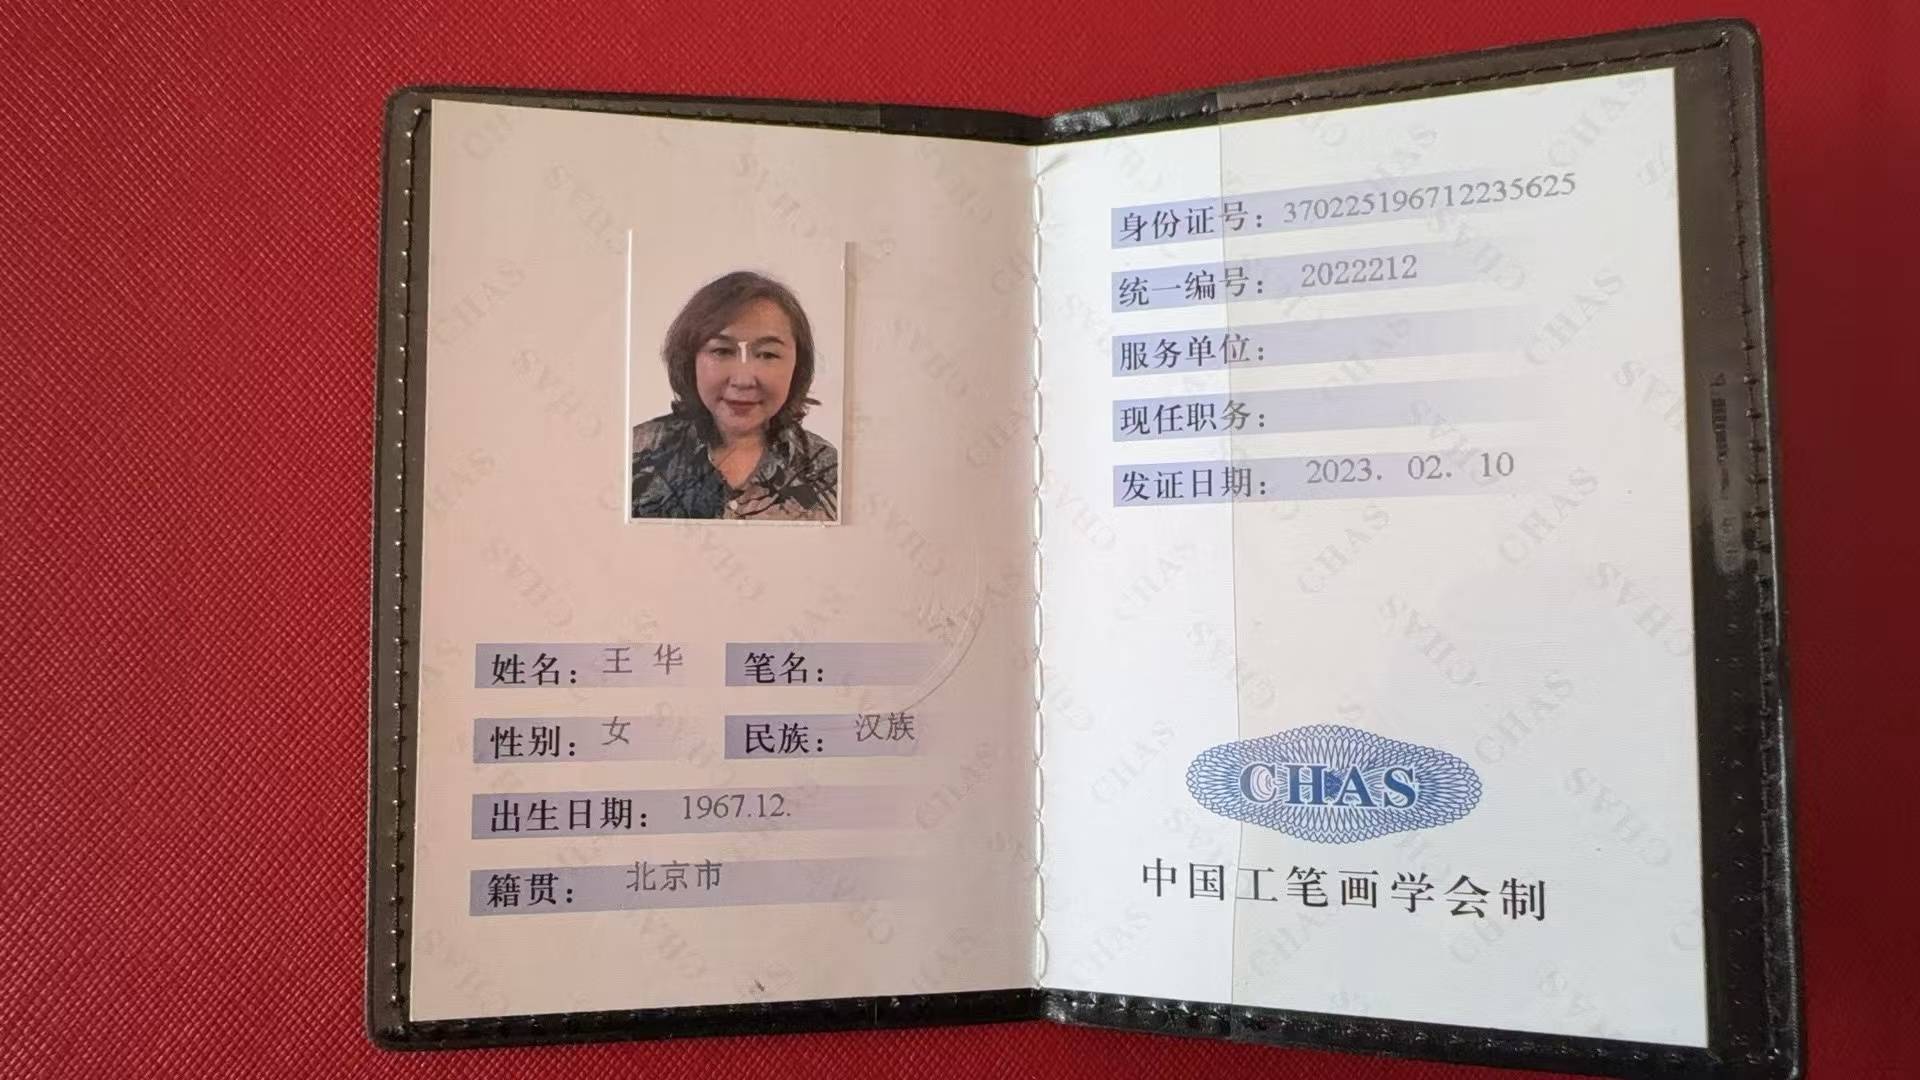 姓名：王 华 笔名：
性别：女 民族：汉族
出生日期：1967.12.
籍贯：北京市
身份证号：370225196712235625
统一编号：2022212
服务单位：
现任职务：
发证日期：2023. 02. 10
CHAS
中国工笔画学会制